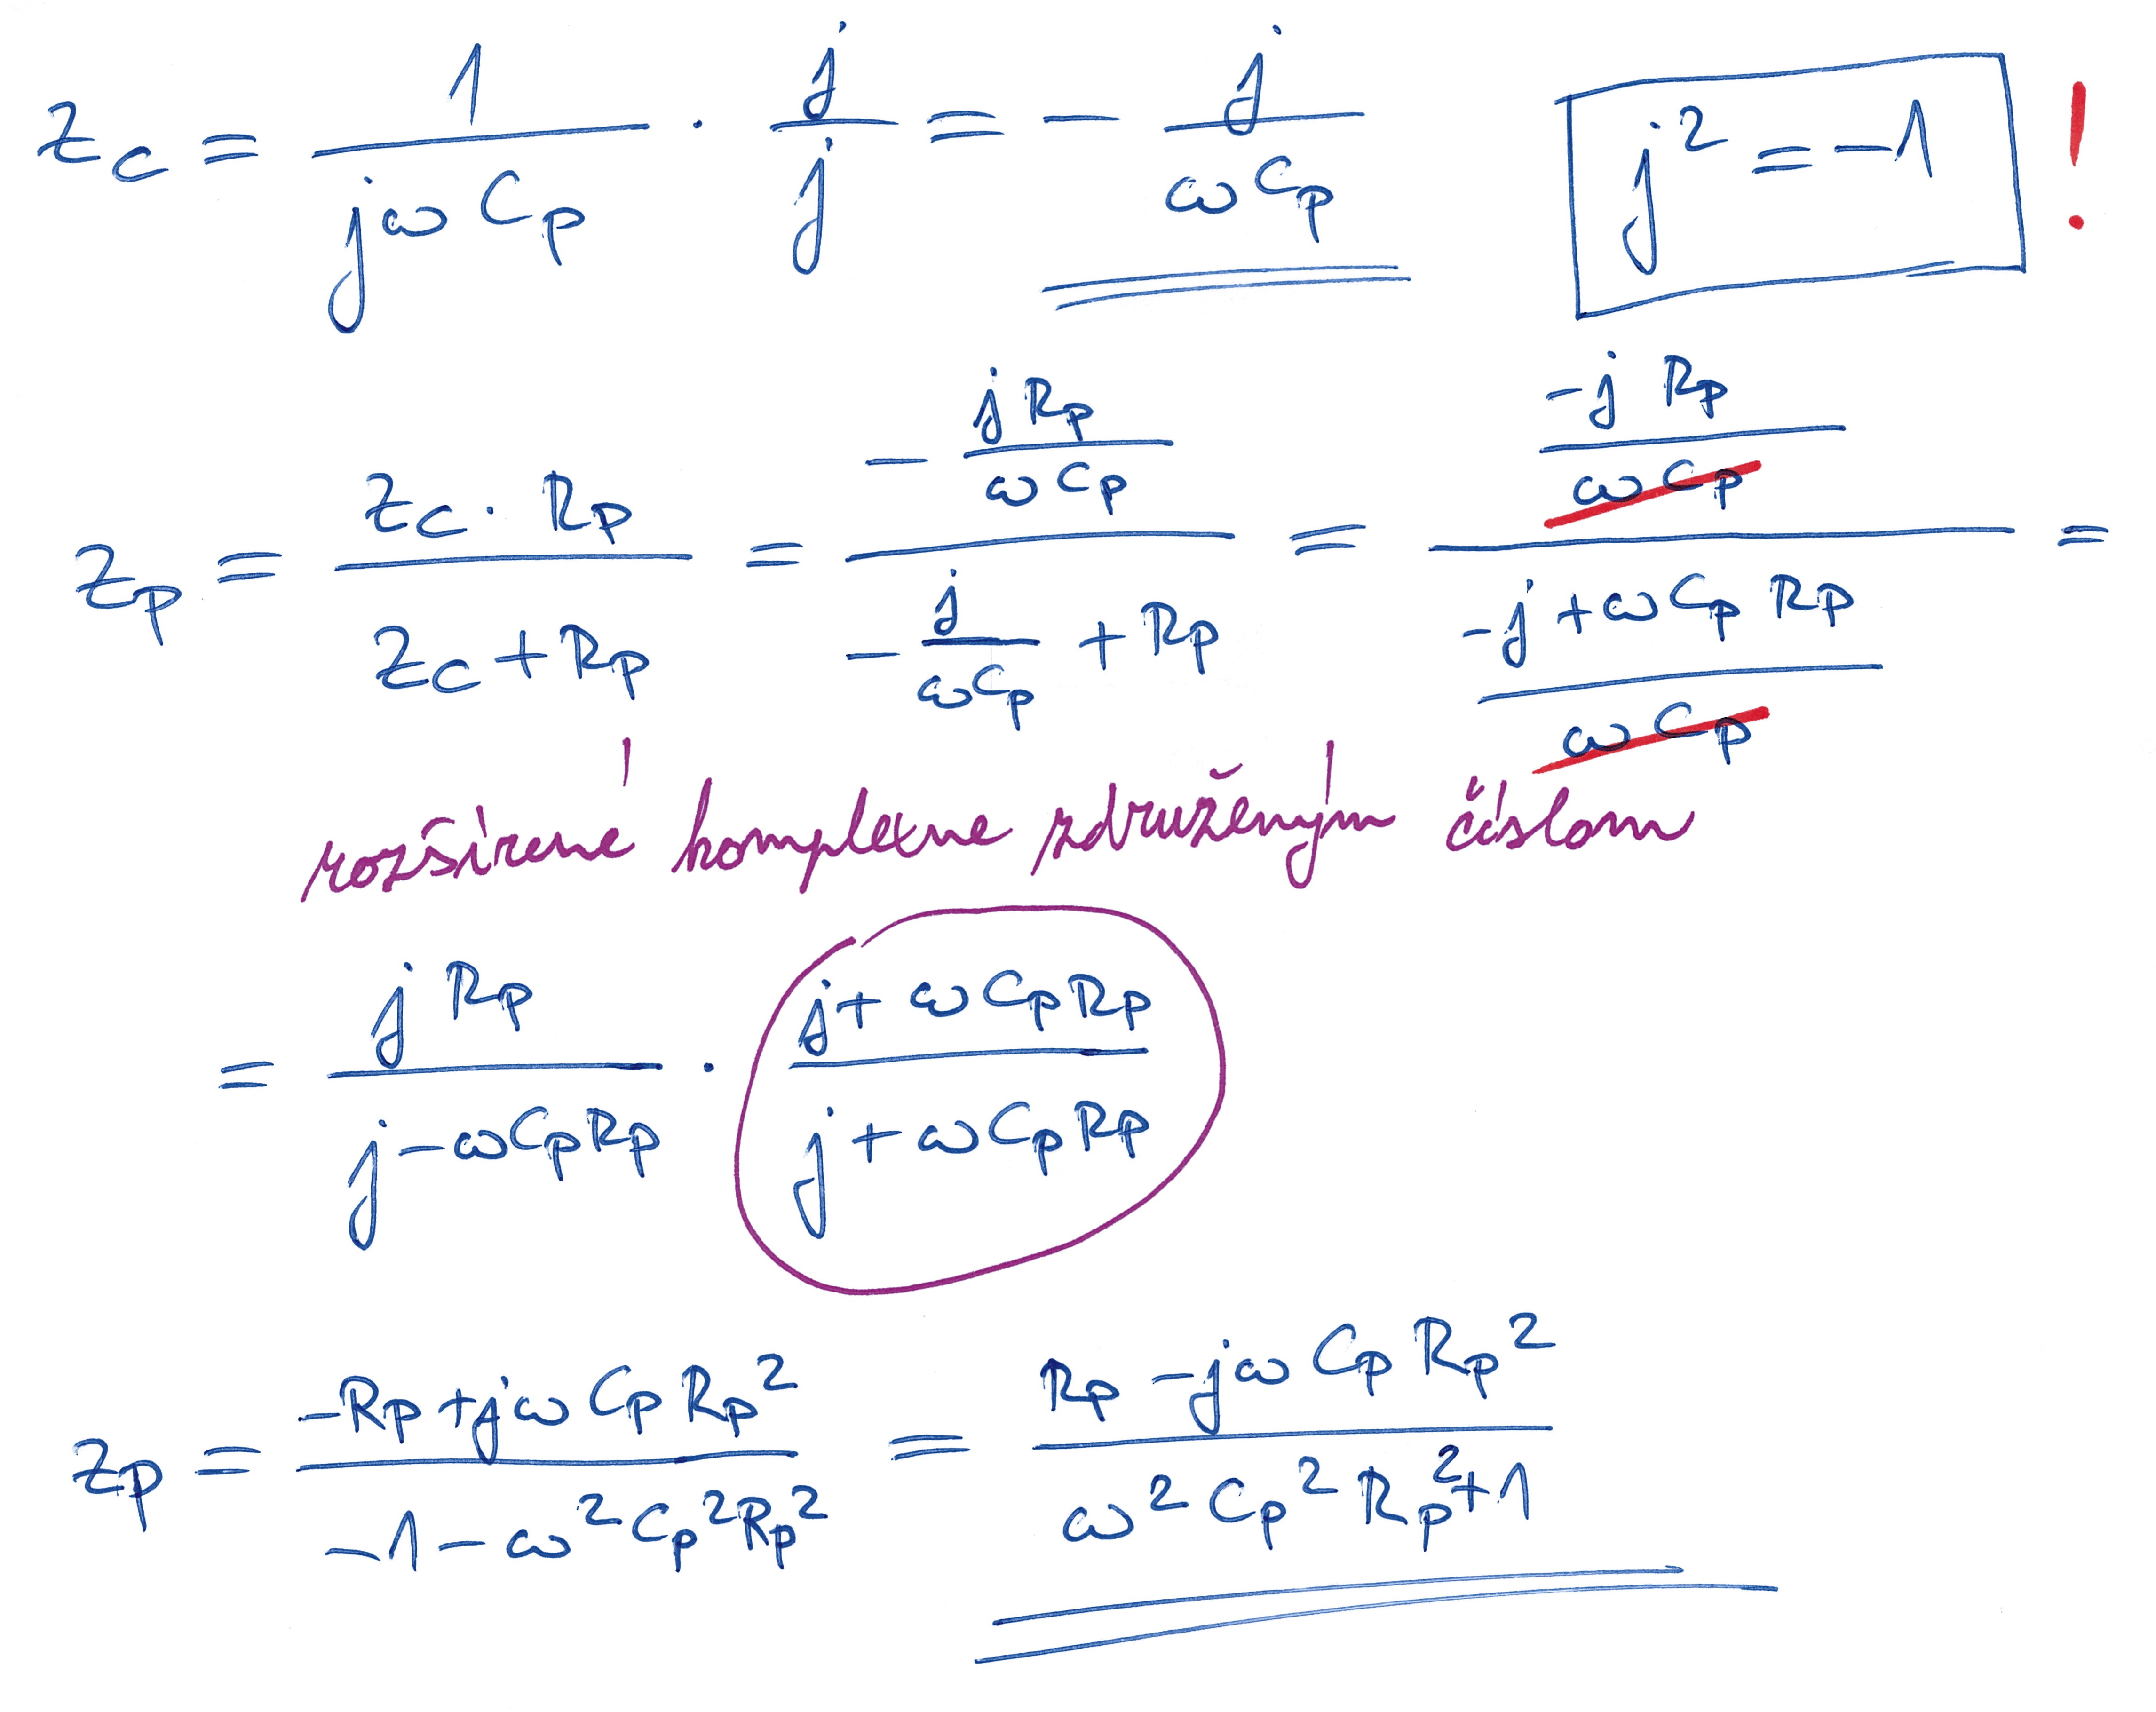 z_C = 1/(jωC_p) · j/j = − j/(ωC_p)   j² = −1 !
z_p = (z_C · R_p)/(z_C + R_p) = (− jR_p/(ωC_p))/(− j/(ωC_p) + R_p) = (−jR_p/(ωC_p))/((−j + ωC_pR_p)/(ωC_p)) =
rozšírené komplexne združeným číslom
= jR_p/(j − ωC_pR_p) · (j + ωC_pR_p)/(j + ωC_pR_p)
z_p = (−R_p + jωC_pR_p²)/(−1 − ω²C_p²R_p²) = (R_p − jωC_pR_p²)/(ω²C_p²R_p² + 1)